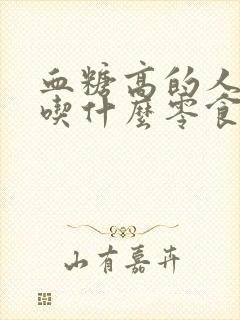 血糖高的人
喫什麼零食
山有嘉卉